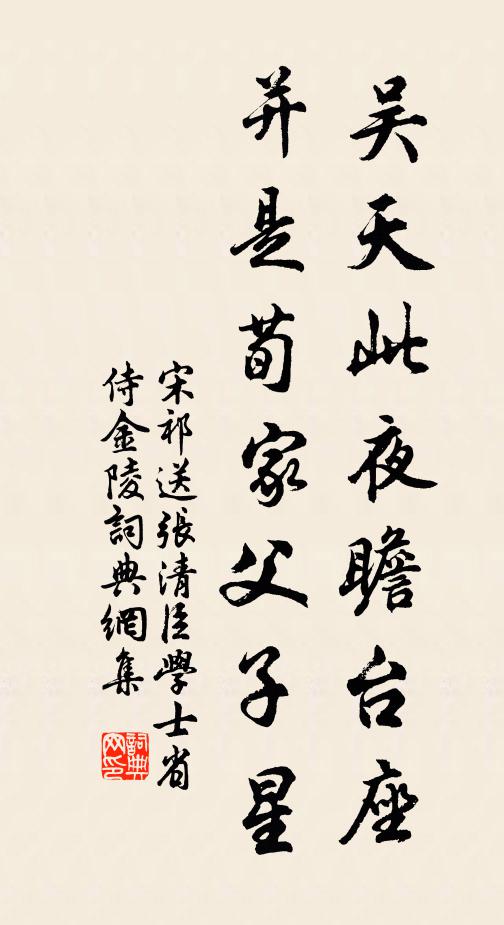 吴天此夜瞻台座
并是荀家父子星
宋祁送張清臣學士省
侍金陵詞典網集
詞典
网印